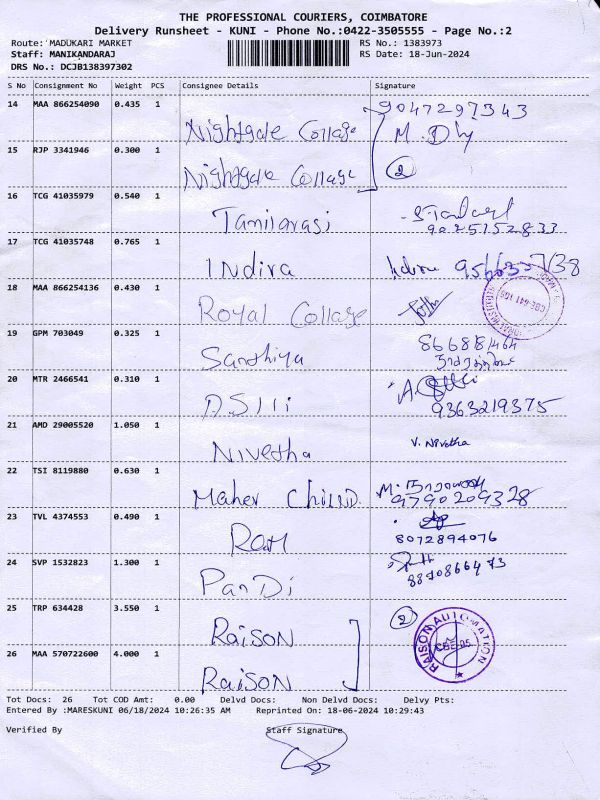 THE PROFESSIONAL COURIERS, COIMBATORE
Delivery Runsheet - KUNI - Phone No.:0422-3505555 - Page No.:2
Route: MADUKARI MARKET RS No.: 1383973
Staff: MANIKANDARAJ RS Date: 18-Jun-2024
DRS No.: DCJB138397302
S No Consignment No Weight PCS Consignee Details Signature
14 MAA 866254090 0.435 1 Nightgale Collage 9047297343
M. Dhy
15 RJP 3341946 0.300 1 Nightgale Collage 2
16 TCG 41035979 0.540 1 Tamilarasi
9025152833
17 TCG 41035748 0.765 1 INdira
18 MAA 866254136 0.430 1 Royal Collage
19 GPM 703049 0.325 1 Sandhiya
20 MTR 2466541 0.310 1
9363219375
21 AMD 29005520 1.050 1 Nivetha V. Nivetha
22 TSI 8119880 0.630 1 Maher
9790209328
23 TVL 4374553 0.490 1 Ram
8072894076
24 SVP 1532823 1.300 1 PanDi
25 TRP 634428 3.550 1 RaisoN 2
RAISON AUTOMATION
26 MAA 570722600 4.000 1 RaisoN
Tot Docs: 26 Tot COD Amt: 0.00 Delvd Docs: Non Delvd Docs: Delvy Pts:
Entered By :MARESKUNI 06/18/2024 10:26:35 AM Reprinted On: 18-06-2024 10:29:43
Verified By Staff Signature